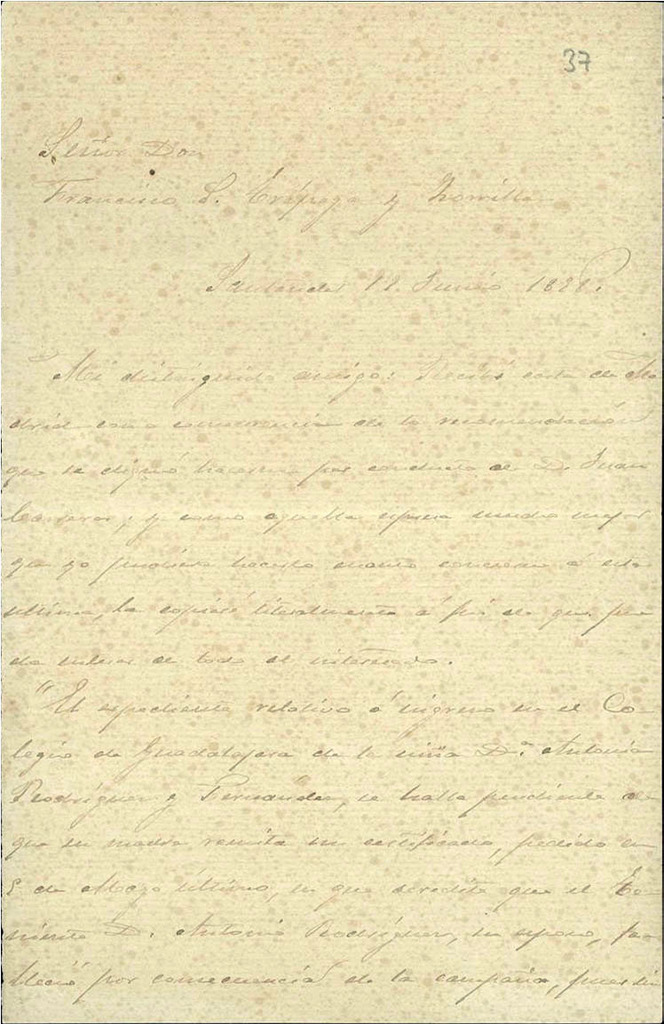 37
Señor Don
Francisco S. Crípoga y Zorrilla
Santander 12 Junio 1888.
Mi distinguido amigo: Recibí carta de Ma
drid como consecuencia de la recomendación
que se dignó hacerme por conducto de D. Juan
y como aquella expresa mucho mejor
que yo pudiera hacerlo cuanto concierne á esta
última, la copiaré literalmente á fin de que pue
da enterar de todo al interesado.
"El expediente relativo á ingreso en el Co-
legio de Guadalajara de la niña Dª. Antonia
Rodríguez y Fernández, se halla pendiente de
que su madre remita un certificado, pedido en
5 de Mayo último, en que acredite que el Te-
niente D. Antonio Rodríguez, su esposo, fa-
lleció por consecuencia de la campaña, pues sin